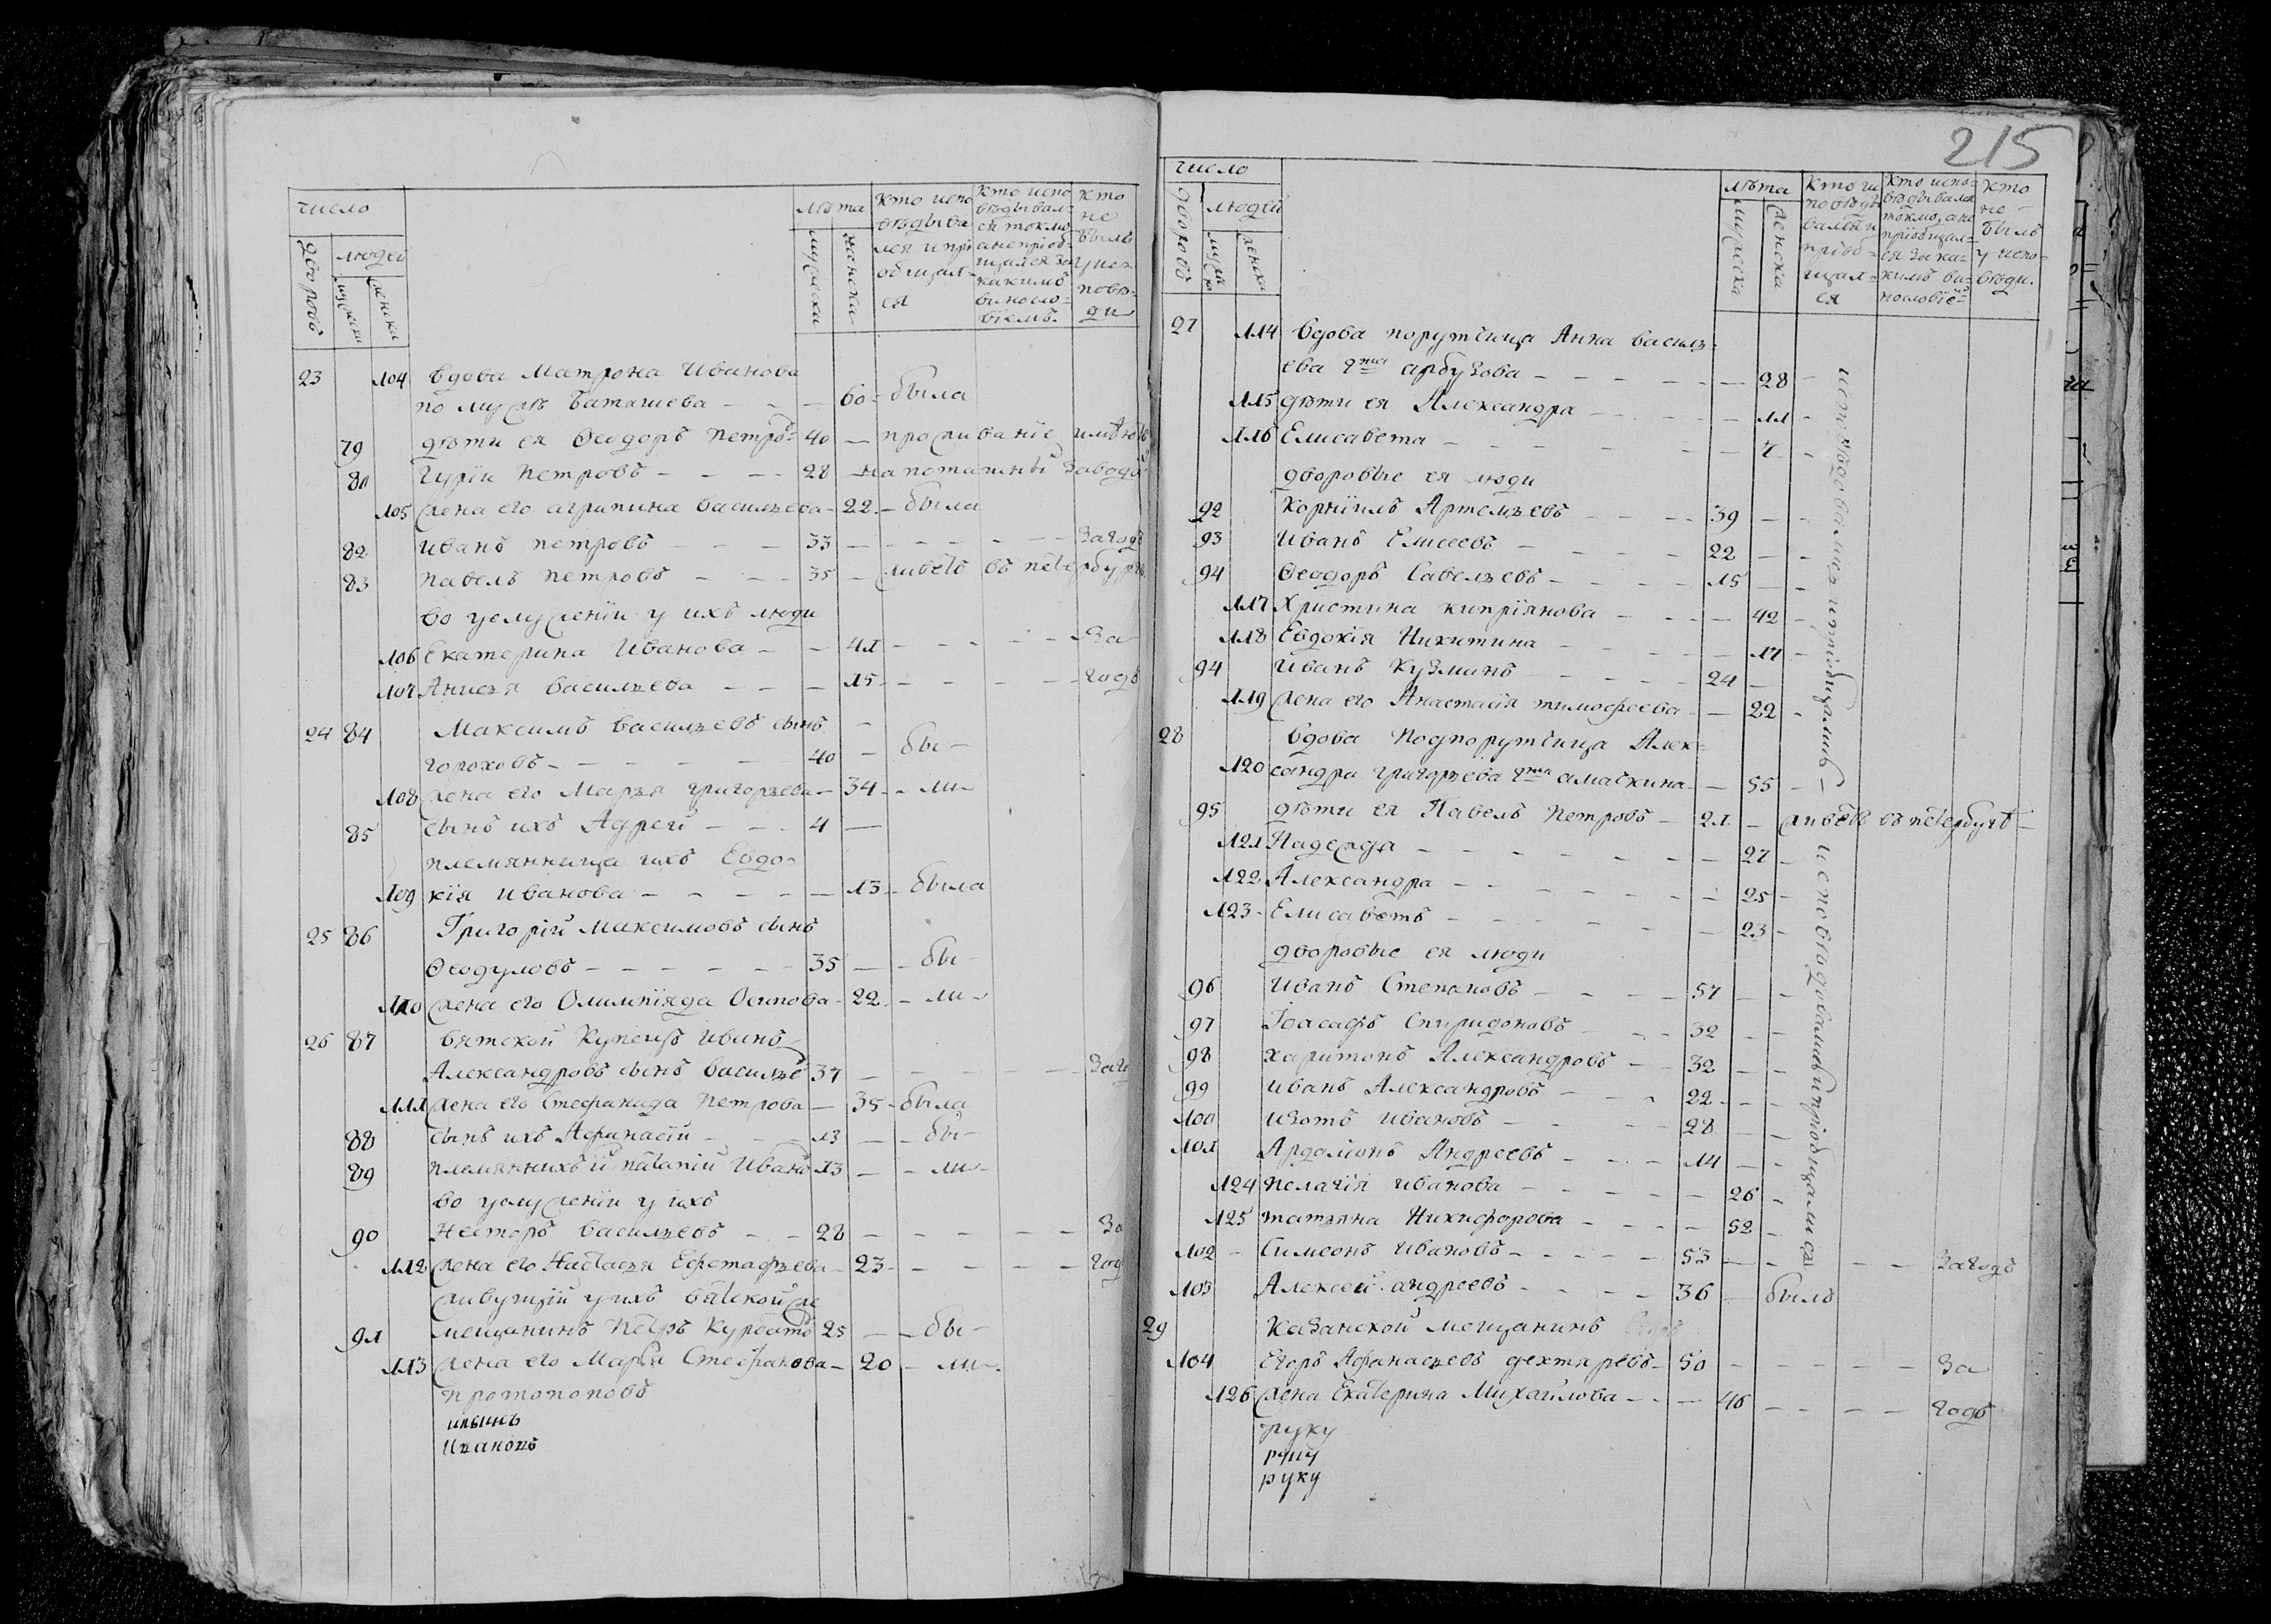 число
людей
дворовъ
мужски
женски
лѣта
мужеска
женска
Кто испо
вѣдыва
лся и прі
общал=
ся
Кто испо
вѣдывал=
ся токмо
а не пріоб=
щался за
какимъ
виносло=
віемъ.
Кто
не
былъ
у ис=
повѣ=
ди
23 104 Вдова Матрона Иванова
по мужѣ Баташева - - - 60 - была
79 дѣти ея Ѳеодоръ Петро= 40 - проживаніе имѣютъ
80 Гурій Петровъ - - - 28 - на поташный заводѣ
105 жена его Агрипина Васильева - 22 - была
82 Иванъ Петровъ - - - 33 - - - - - за годъ
83 Павелъ Петровъ - - - 35 - живетъ въ Петербургѣ
во услуженіи у ихъ люди
106 Екатерина Иванова - - 41 - - - - - за
107 Анисья Васильева - - - 15 - - - - - годъ
24 84 Максимъ Васильевъ сынъ
Гороховъ - - - - - 40 - бы-
108 жена его Марья Григорьева - 34 - ли-
85 сынъ ихъ Адрей - - - 4 -
племянница ихъ Евдо=
109 кія Иванова - - - - - 13 - была
25 86 Григорій Максимовъ сынъ
Ѳеодуловъ - - - - - - 35 - - бы-
110 жена его Олимпіяда Осипова - 22 - ли-
26 87 Вятской Купецъ Иванъ
Александровъ сынъ Василье 37 - - - - - заго
111 жена его Стефанида Петрова - 35 - была
88 сынъ ихъ Афанасій - - - 13 - - бы-
89 племянникъ Ипатій Ивано 13 - - ли-
во услуженіи у ихъ
90 Несторъ Васильевъ - - 28 - - - - - за
112 жена его Настасья Ефстафьева - 23 - - - - - год
живущій у ихъ Вятской же
91 мещанинъ Петръ Курбато 25 - - бы-
113 жена его Марья Стефанова - 20 - ли-
Протопоповъ
Ильинъ
Ивановъ
215
число
дворовъ
людей
мужи
женски
лѣта
мужеска
женска
Кто ис
повѣды
вался и
пріоб=
щал=
ся
Кто испо=
вѣдывался
токмо, а не
пріобщал=
ся за ка=
кимъ ви=
нословіе=
Кто
не
былъ
у испо=
вѣди.
27 114 Вдова порутчица Анна Василь=
ева дочь Арбузова - - - - - - 28 -
115 дѣти ея Александра - - - - - 11 -
116 Елисавета - - - - - 7 -
дворовые ея люди
92 Корнилъ Артемьевъ - - - - 39 - -
93 Иванъ Елисеевъ - - - - 22 - -
94 Ѳеодоръ Савельевъ - - - - 15 - -
117 Христина Кипріянова - - - - 42 -
118 Евдокія Никитина - - - - - 17 -
94 Иванъ Кузминъ - - - - 24 -
119 жена его Анастасія Тимофеева - - 22 -
исповѣдовались и пріобщались -
28 Вдова Подпорутчица Алек=
120 сандра Григорьева дочь Амачкина - - 55 -
95 дѣти ея Павелъ Петровъ - 21 - живетъ въ Петербургѣ -
121 Надежда - - - - - - - 27 -
122 Александра - - - - - - 25 -
123 - Елисаветъ - - - - - - 23 -
дворовые ея люди
96 Иванъ Степановъ - - - - 57 - -
97 Іоасафъ Спиридоновъ - - - 32 - -
98 Харитонъ Александровъ - - 32 - -
99 Иванъ Александровъ - - - 22 - -
100 Изотъ Ивановъ - - - - 28 - -
101 Ардаліонъ Андреевъ - - - 14 - -
124 Пелагія Иванова - - - - - 26 -
125 Татьяна Никифорова - - - - 52 -
исповѣдовались и пріобщались
102 - Симеонъ Ивановъ - - - - - 53 - - - - за годъ
103 Алексей Андреевъ - - - - 36 - былъ
29 Казанской мещанинъ
104 Егоръ Афанасьевъ Дехтяревъ - 50 - - - - - за
126 жена Екатерина Михайлова - - - 46 - - - - годъ
руку
руку
руку